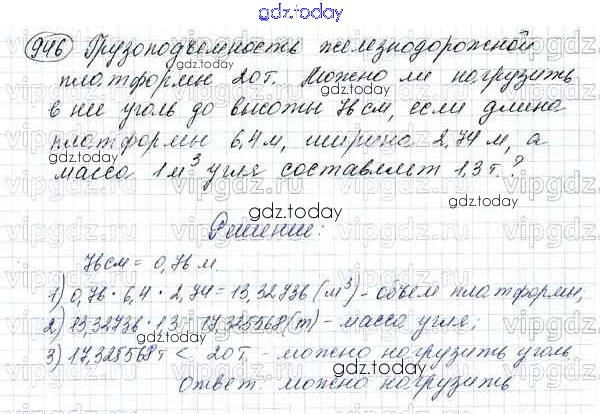 gdz.today
946 Грузоподъемность железнодорожной
gdz.today
платформы 20т. Можно ли нагрузить
gdz.today
в нее уголь до высоты 76 см, если длина
gdz.today
платформы 6,4 м, ширина 2,74 м, а
gdz.today
масса 1 м³ угля составляет 1,3 т.?
gdz.today
Решение:
gdz.today
76 см = 0,76 м
1) 0,76 · 6,4 · 2,74 = 13,32736 (м³) - объем платформы;
gdz.today
2) 13,32736 · 1,3 = 17,325568 (т) - масса угля;
gdz.today
3) 17,325568 т < 20т. - можно нагрузить уголь
Ответ: можно нагрузить